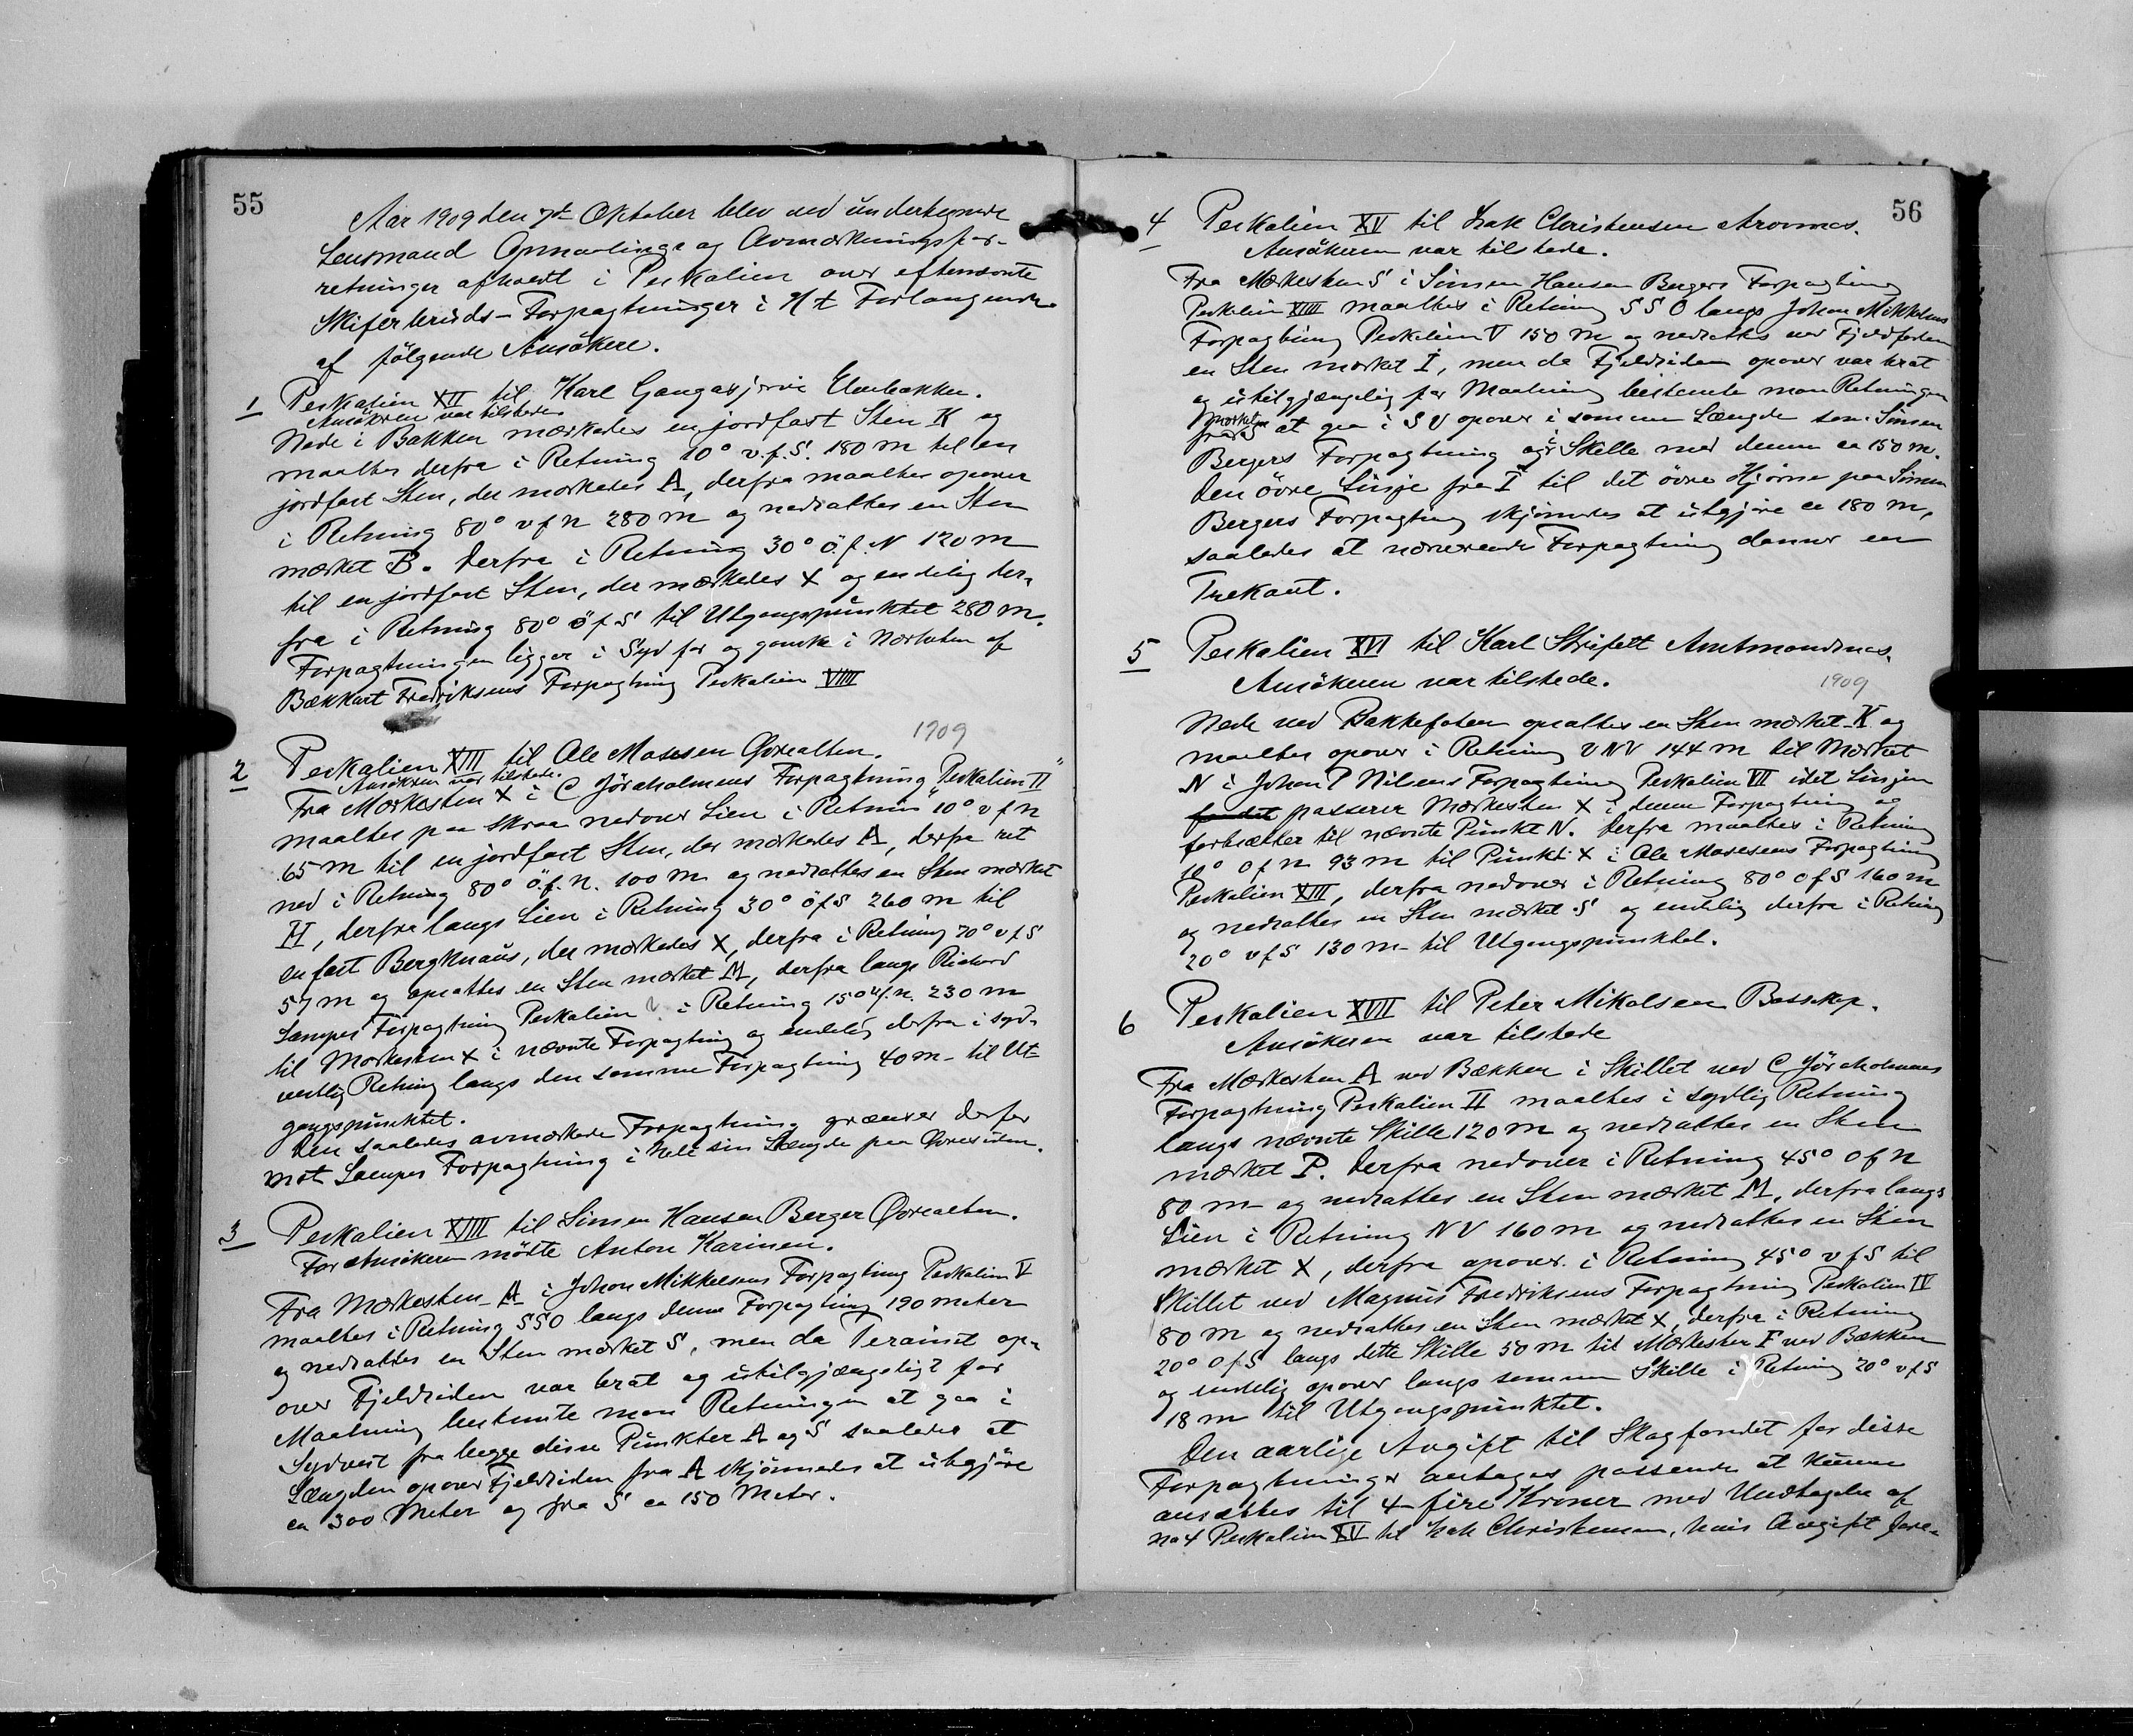 55
Aar 1909 den 7de Oktober blev ved undertegnede
Lensmand Opmaalings og Avmærkningsfor-
retninger afholdt i Peskalien over eftennævnte
Skiferbruds-Forpagtninger i Forlangende
af følgende Ansökere.
1 Peskalien XII til Karl Gangasjærvi Elvebakken.
Ansökeren var tilstede.
Nede i Bakken mærkedes en jordfast Sten K og
maaltes derfra i Retning 10° v.f.S. 180 m til en
jordfast Sten, der mærkedes A, derfra maaltes opover
i Retning 80° v f n 280 m og nedsattes en Sten
mærket B. Derfra i Retning 30° ö.f.N 120 m
til en jordfast Sten, der mærkedes X og endelig der-
fra i Retning 80° ö f S til Utgangspunktet 280 m.
Forpagtningen ligger i Syd for og ganske i Nærheten af
Bækkart Fredriksens Forpagtning Peskalien VIIII
1909
2 Peskalien XIII til Ole Mosesen Övrealten.
Ansökeren var tilstede.
Fra Mærkesten X i C Jöraholmens Forpagtning "Peskalien II"
maaltes paa skraa nedover Lien i Retnin 10° v f n
65 m til en jordfast Sten, der mærkedes A, derfra ret
ned i Retning 80° ö.f.n. 100 m og nedsattes en Sten mærket
H, derfra langs Lien i Retning 30° ö f S 260 m til
en fast Bergknaus, der mærkedes X, derfra i Retning 70° v f S
57 m og opsattes en Sten mærket M, derfra langs Richard
Lampes Forpagtning Peskalien i Retning 15° v.f.n. 230 m
til Mærkesten X i nævnte Forpagtning og endelig derfra i syd-
vestlig Retning langs den samme Forpagtning 40 m - til Ut-
gangspunktet.
Den saaledes avmærkede Forpagtning grænser derfor
mot Lampes Forpagtning i hele sin Længde paa Övresiden.
3 Peskalien XIIII til Simen Hansen Berger Övrealten.
For Ansökeren mötte Anton Karinen.
Fra Mærkesten A i Johan Mikkelsens Forpagtning Peskalien V
maaltes i Retning SSO langs denne Forpagtning 190 meter
og nedsattes en Sten mærket S, men da Terainet op-
over Fjeldsiden var brat og utilgjængeligt for
Maalning bestemte man Retningen at gaa i
Sydvest fra begge disse Punkter A og S saaledes at
Længden opover Fjeldsiden fra A skjönnedes at utgjöre
ca 300 Meter og fra S ca 150 Meter.
56
4 Peskalien XV til Isak Christensen Aronnes.
Ansökeren var tilstede.
Fra Mærkesten S i Simen Hansen Bergers Forpagtning
Peskalien XIIII maaltes i Retning S S O langs Johan Mikkelsens
Forpagtning Peskalien V 150 m og nedsattes ved Fjeldfoten
en Sten mærket I, men da Fjeldsiden opover var brat
og utilgjængelig for Maalning bestemte man Retningen
at gaa i S V opover i samme Længde som Simen
Bergers Forpagtning og i Skille med denne ca 150 m.
Den övre Linje fra I til det övre Hjörne paa Simen
Bergers Forpagtning skjönnedes at utgjöre ca 180 m,
saaledes at nærværende Forpagtning danner en
Trekant.
5 Peskalien XVI til Karl Strifelt Amtmandsnes.
Ansökeren var tilstede.
1909
Nede ved Bakkefoten opsattes en Sten mærket K og
maaltes opover i Retning V N V 144 m til Mærket
N i Johan P Nilsens Forpagtning Peskalien VII idet Linjen
passerer Mærkesten X i denne Forpagtning og
fortsætter til nævnte Punkt N. Derfra maaltes i Retning
10° O f n 93 m til Punkt X i Ole Mosesens Forpagtning
Peskalien XIII, derfra nedover i Retning 80° O f S 160 m
og nedsattes en Sten mærket S og endelig derfra i Retning
20° v f S 130 m - til Utgangspunktet.
6 Peskalien XVII til Peter Mikalsen Bossekop.
Ansökeren var tilstede
Fra Mærkesten A ved Bækken i Skillet ved C Jöraholmens
Forpagtning Peskalien II maaltes i sydlig Retning
langs nævnte Skille 120 m og nedsattes en Sten
mærket P. Derfra nedover i Retning 45° O f n
80 m og nedsattes en Sten mærket M, derfra langs
Lien i Retning N V 160 m og nedsattes en Sten
mærket X, derfra opover i Retning 45° v f S til
Skillet ved Magnus Fredriksens Forpagtning Peskalien IV
80 m og nedsattes en Sten mærket X, derfra i Retning
20° O f S langs dette Skille 50 m til Mærkesten F ved Bækken
og endelig opover langs samme Skille i Retning 20° v f S
18 m til Utgangspunktet.
Den aarlige Avgift til Skogfondet for disse
Forpagtninger antages passende at kunne
ansættes til 4 - fire Kroner med Undtagelse af
no 4 Peskalien XV til Isak Christensen, hvis Avgift fore-